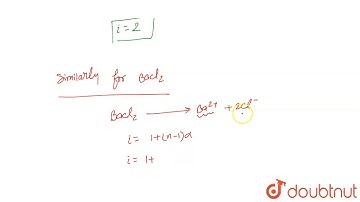 i=2
Similarly for BaCl2
BaCl2 → Ba²⁺ + 2Cl⁻
i = 1+(n-1)α
i = 1+
doubtnut